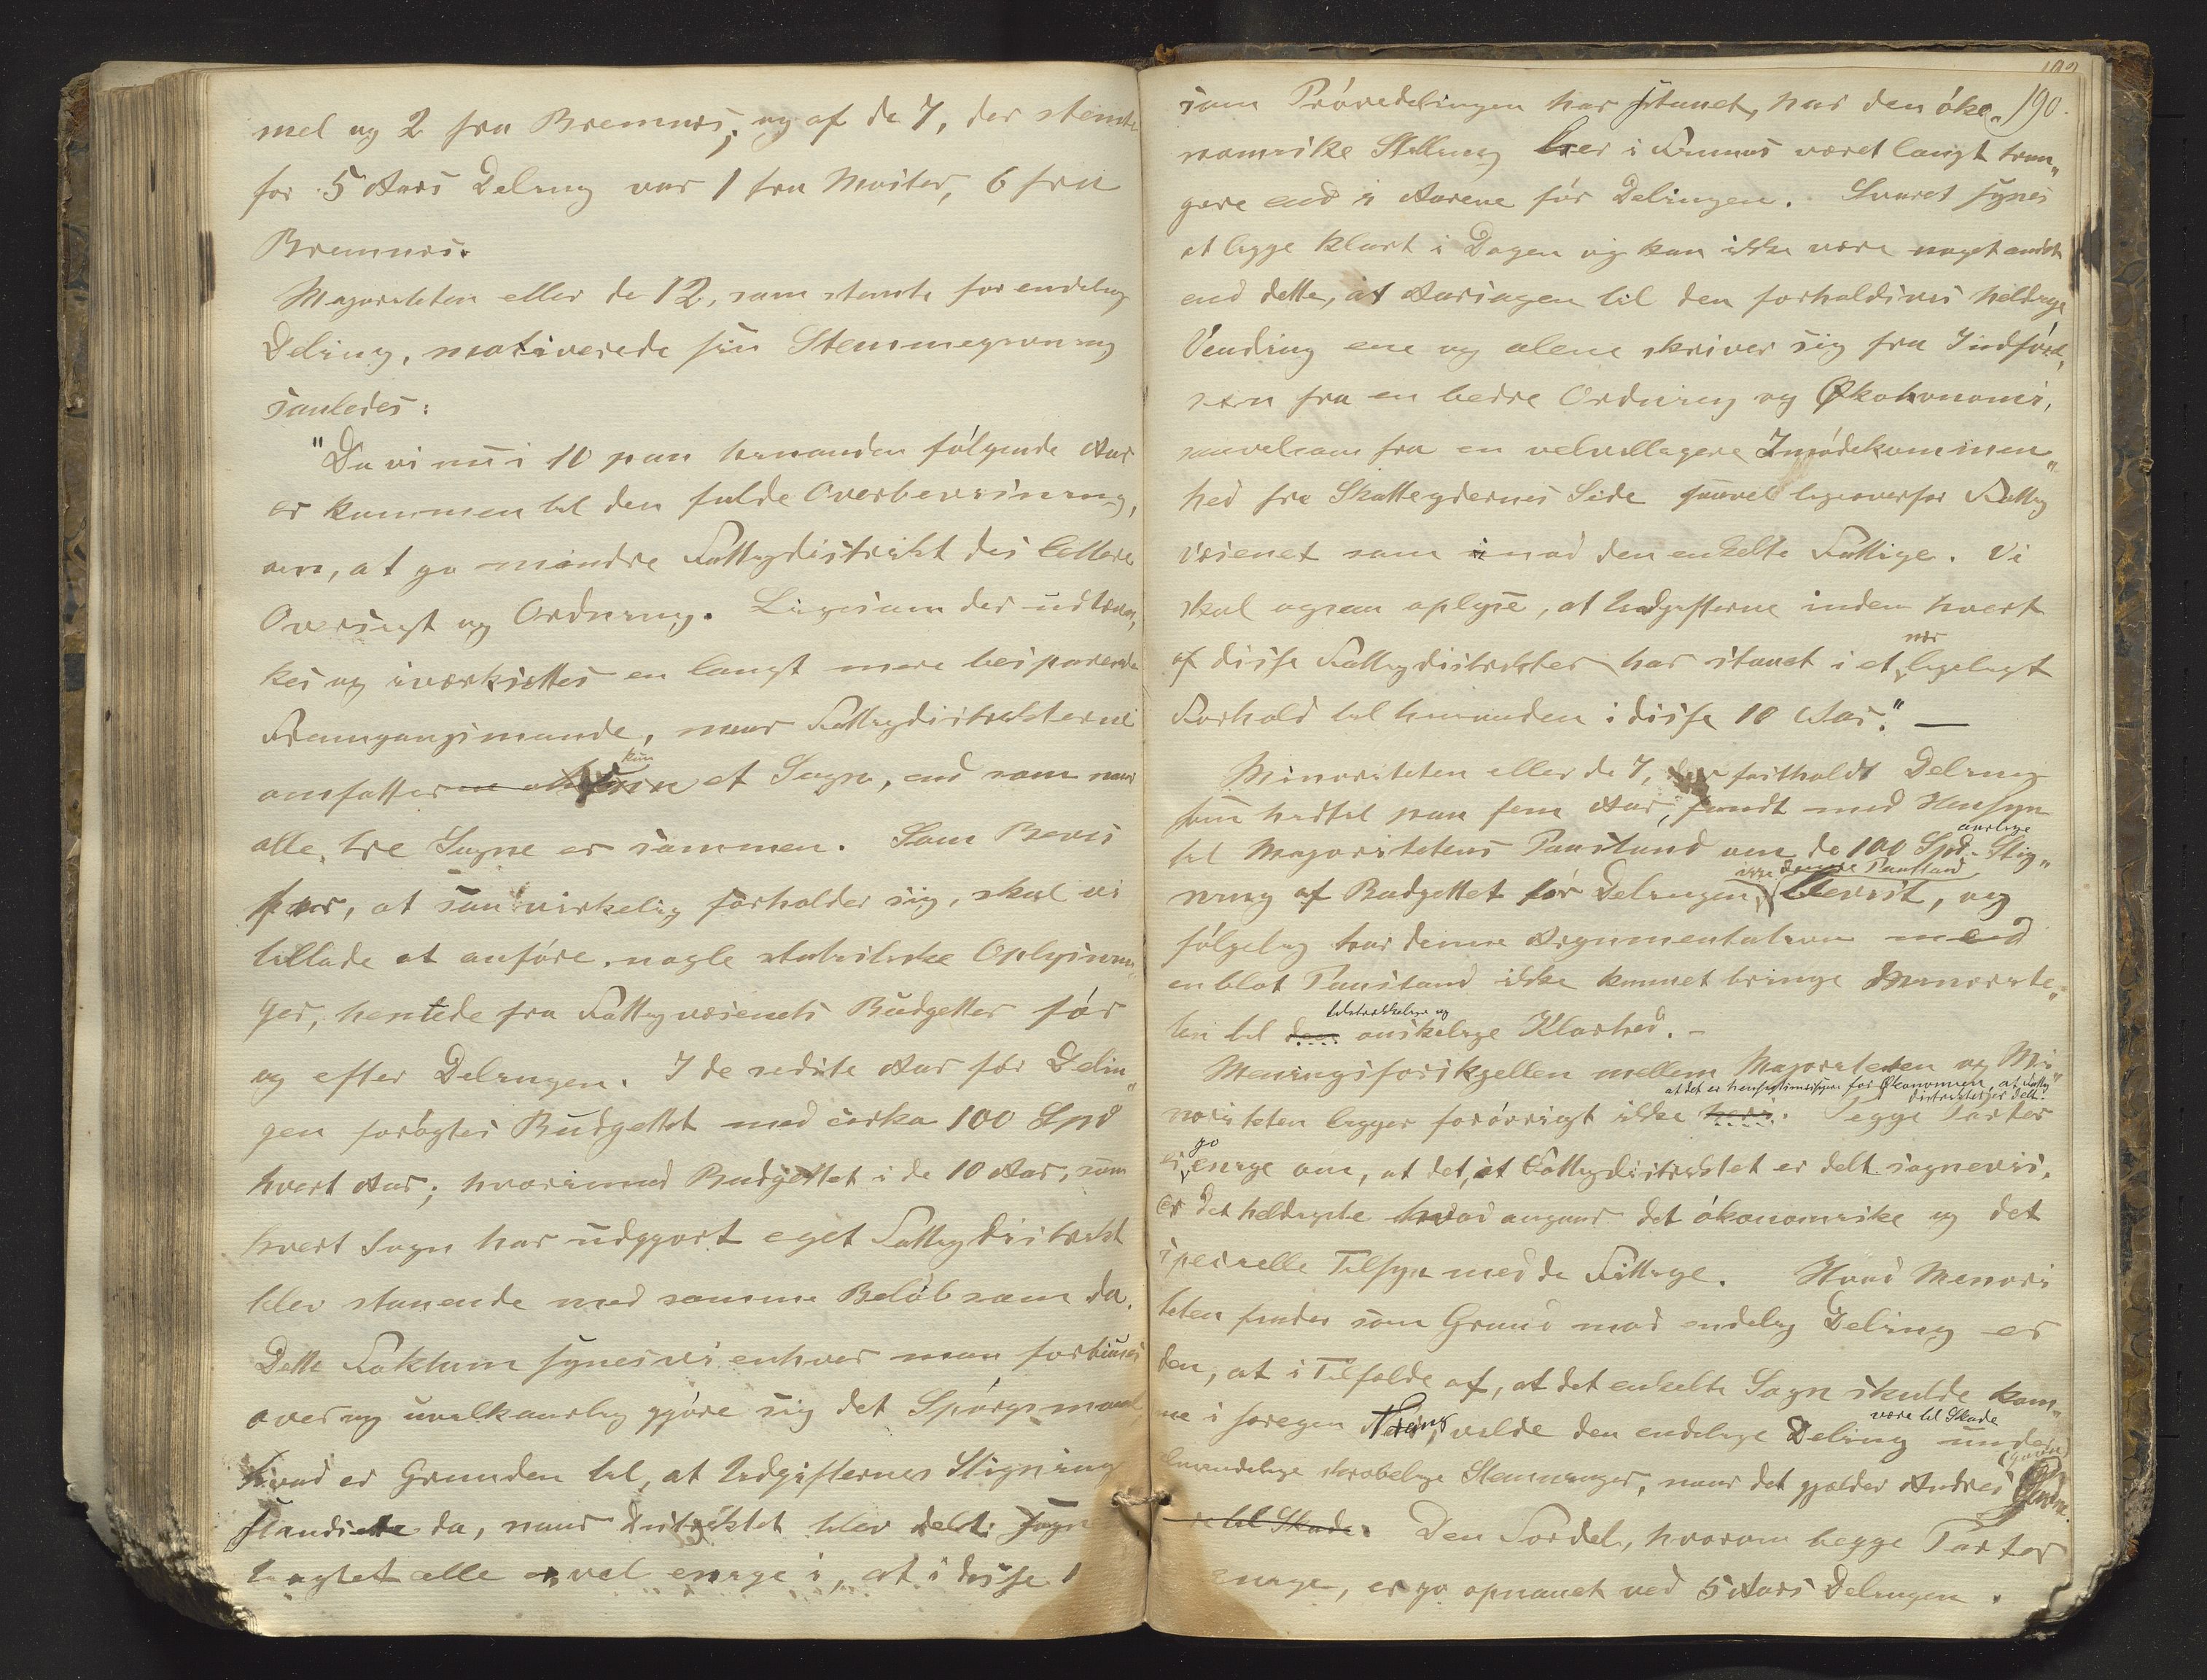 mel og 2 fra Bremnes; og af de 7, der stemte
for 5 Aars Deling var 1 fra Moster, 6 fra
Bremnes.
Majoriteten eller de 12, som stemte for endelig
Deling, motiverede sin Stemmegivning
saaledes:
"Da vi nu i 10 paa hinanden følgende Aar
er kommen til den fulde Overbevisning,
om, at jo mindre Fattigdistrikt des lettere
Oversigt og Ordning. Ligesom der udtæn„
kes og iværksættes en langt mere besparende
Fremgangsmaade, naar Fattigdistrikterne
kun
omfatter et Sogn, end som naar
alle tre Sogne er sammen. Som Bevis
for, at saa virkelig forholder sig, skal vi
tillade at anføre nogle statistiske Oplysnin„
ger, hentede fra Fattigvæsenets Budgetter før
og efter Delingen. I de sidste Aar før Delin„
gen forøgtes Budgettet med cirka 100 Spd
hvert Aar; hvorimod Budgettet i de 10 Aar, som
hvert Sogn har udgjort eget Fattigdistrikt
blev staaende med samme Beløb som da.
Dette Faktum synes vi enhver maa forbauses
over og uvilkaarlig gjøre sig det Spørgsmaal
hvad er Grunden til, at Udgifternes Stigning
standsede da, naar Distriktet blev delt. Sogn
er vel enige i, at i disse 1
190.
som Prøvedelingen har staaet, har den øko„
nomiske Stilling her i Finnaas været langt tran„
gere end i Aarene før Delingen. Svaret synes
at ligge klart i Dagen og kan ikke være noget andet
end dette, at Aarsagen til den forholdsvis heldige
Vending ene og alene skriver sig fra Indførel„
sen fra en bedre Ordning og Økohonomi,
saavelsom fra en velvilligere Imødekommen„
hed fra Skatteydernes Side saavel ligeoverfor Fattig
væsenet som imod den enkelte Fattige. Vi
skal ogsaa oplyse, at Udgifterne inden hvert
nær
af disse Fattigdistrikter har staaet i et ligeligt
Forhold til hinanden i disse 10 Aar." —
Minoriteten eller de 7, der fastholdt Deling
som hidtil paa fem Aar, fandt med Hensyn
aarlige
til Majoritetens Paastand om de 100 Spd. Stig„
ikke denne Paastand
ning af Budgettet før Delingen bevist, og
følgelig har denne Argumentation med
en blot Paastand ikke kunnet bringe Minorite„
tilstrækkelige og
ten til den ønskelige Klarhed. –
Meningsforskjellen mellem Majoriteten og Mi„
at det er hensigtsmæssigere for Økonomien, at Fattig
distriktet er delt.
noriteten ligger forøvrigt ikke heri. Begge Parter
jo
er enige om, at det, at Fattigdistriktet er delt sognevis,
er det heldigste hvad angaar det økonomiske og det
specielle Tilsyn med de Fattige. Hvad Minori
teten finder som Grund mod endelig Deling er
den, at i Tilfælde af, at det enkelte Sogn skulde kom„
være til Skade
me i foregen Trang, vilde den endelige Deling under
almindelige skrøbelige Stemninger, naar det gjælder Andres
re til Skade. Den Fordel, hvorom begge Parter
enige, er jo opnaaet ved 5 Aars Delingen.